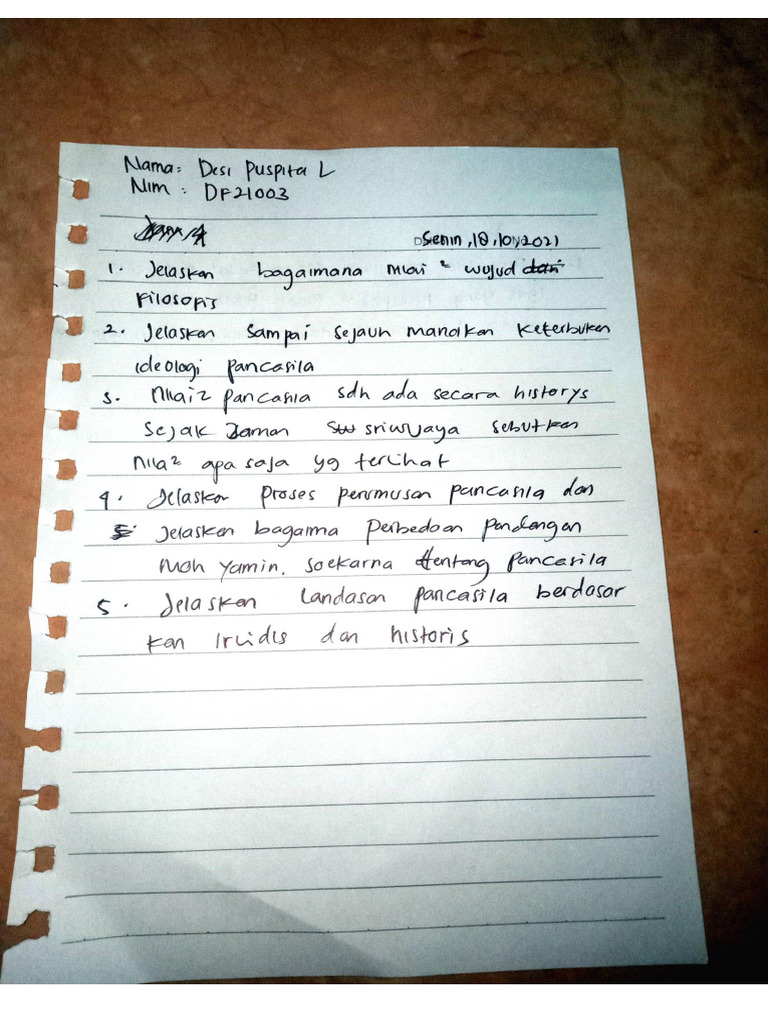 Nama: Desi Puspita L
Nim : DF21003
Senin, 18, 10, 2021
1. Jelaskan bagaimana nilai² wujud dari
Filosofis
2. Jelaskan sampai sejauh manakan keterbukan
ideologi pancasila
3. Nilai2 pancasila sdh ada secara historys
Sejak Zaman sriwijaya sebutkan
nila² apa saja yg terlihat
4. Jelaskan proses perumusan pancasila dan
Jelaskan bagaima Perbedaan Pandangan
Moh Yamin. soekarna tentang Pancasila
5. Jelaskan landasan pancasila berdasar
kan dan historis